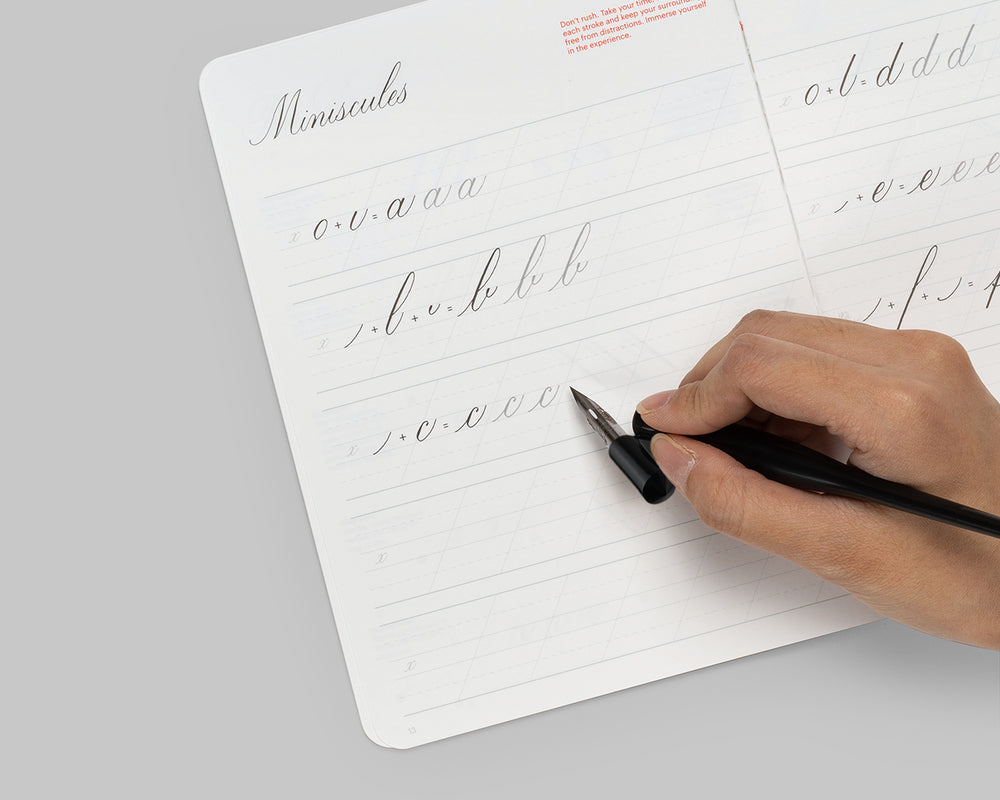 Don't rush. Take your time,
each stroke and keep your surround
free from distractions. Immerse yourself
in the experience.
Miniscules
x o + ι = a a a
x / + l + υ = b b b
x / + c = c c c
x
x
13
x o + l = d d d
x / + e = e e e